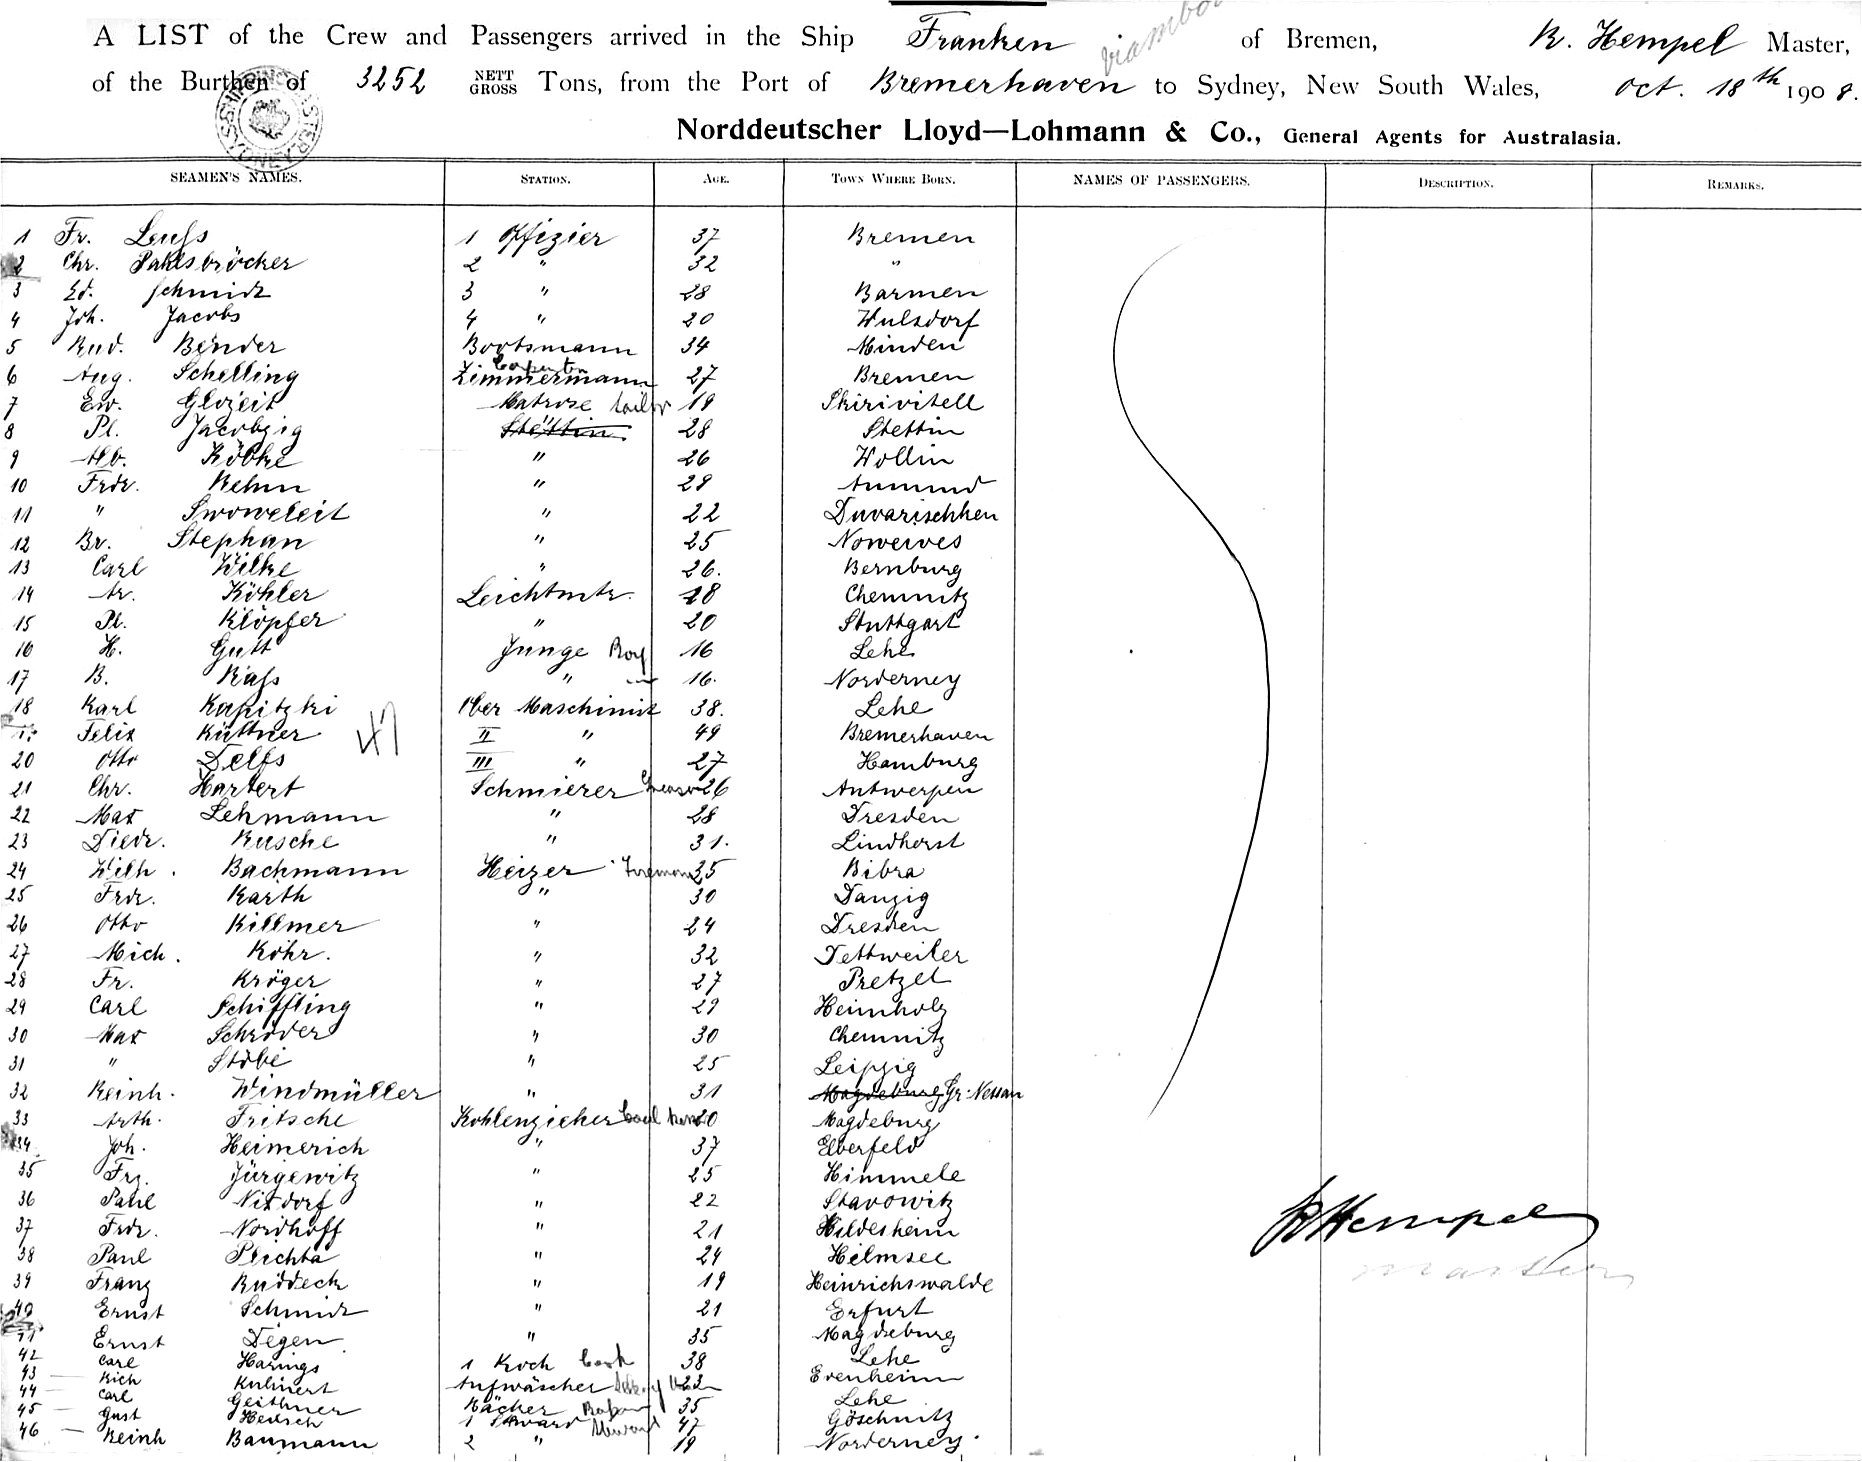 A LIST of the Crew and Passengers arrived in the Ship Franken of Bremen, R. Hempel Master,
of the Burthen of 3252 NETT GROSS Tons, from the Port of Bremerhaven to Sydney, New South Wales, Oct. 18th 1908.
Norddeutscher Lloyd—Lohmann & Co., General Agents for Australasia.
SEAMEN'S NAMES. STATION. AGE. TOWN WHERE BORN. NAMES OF PASSENGERS. DESCRIPTION. REMARKS.
1 Fr. Leuss 1 Offizier 37 Bremen
2 Chr. Pahlsbröcker 2 " 32 "
3 Ed. Schmidt 3 " 28 Barmen
4 Joh. Jacobs 4 " 20 Wulsdorf
5 Rud. Bender Bootsmann 34 Minden
6 Aug. Schelling Zimmermann Carpenter 27 Bremen
7 Ew. Glozeit Matrose Sailor 19 Skirivitell
8 Pl. Jacobzig Stettin 28 Stettin
9 Alb. Köbke " 26 Wollin
10 Frdr. Rehm " 29 Aumund
11 " Swoweleit " 22 Duvarischken
12 Br. Stephan " 25 Nowewes
13 Carl Wilke " 26. Bernburg
14 Ar. Köhler Leichtmtr. 18 Chemnitz
15 Pl. Klöpfer " 20 Stuttgart
16 H. Gutt Junge Boy 16 Lehe
17 B. Rass " 16. Norderney
18 Karl Kapitzki Ober Maschinist 38. Lehe
Felix Küttner II " 49 Bremerhaven
20 Otto Delfs III " 27 Hamburg
21 Chr. Harbert Schmierer Greaser 26 Antwerpen
22 Max Lehmann " 28 Dresden
23 Diedr. Rusche " 31. Lindhorst
24 Wilh. Bachmann Heizer Fireman 35 Bibra
25 Frdr. Karth " 30 Danzig
26 Otto Killmer " 24 Dresden
27 Mich. Köhr. " 32 Tettweiler
28 Fr. Kröger " 27 Pretzel
29 Carl Schiffling " 29 Heimholz
30 Max Schröder " 30 Chemnitz
31 " Stöbe " 25 Leipzig
32 Reinh. Windmüller " 31 Magdeburg Gr. Nessau
33 Arth. Fritsche Kohlenzieher Coal 20 Magdeburg
34 Joh. Heimerich " 37 Elberfeld
35 Frz. Jürgewitz " 25 Himmele
36 Paul Nixdorf " 22 Stavowitz
37 Frdr. Nordhoff " 21 Hildesheim
38 Paul Plichta " 24 Helmsee
39 Franz Ruddeck " 19 Heinrichswalde
40 Ernst Schmidt " 21 Erfurt
41 Ernst Degen " 35 Magdeburg
42 Carl Harings 1 Koch Cook 38 Lehe
43 Rich Kuhnert Aufwäscher 23 Evenheim
44 Carl Geithner Bäcker Baker 35 Lehe
45 Gust 1 Steward Steward 47 Göschnitz
46 Reinh Baumann 2 " 19 Norderney
R Hempel
Master